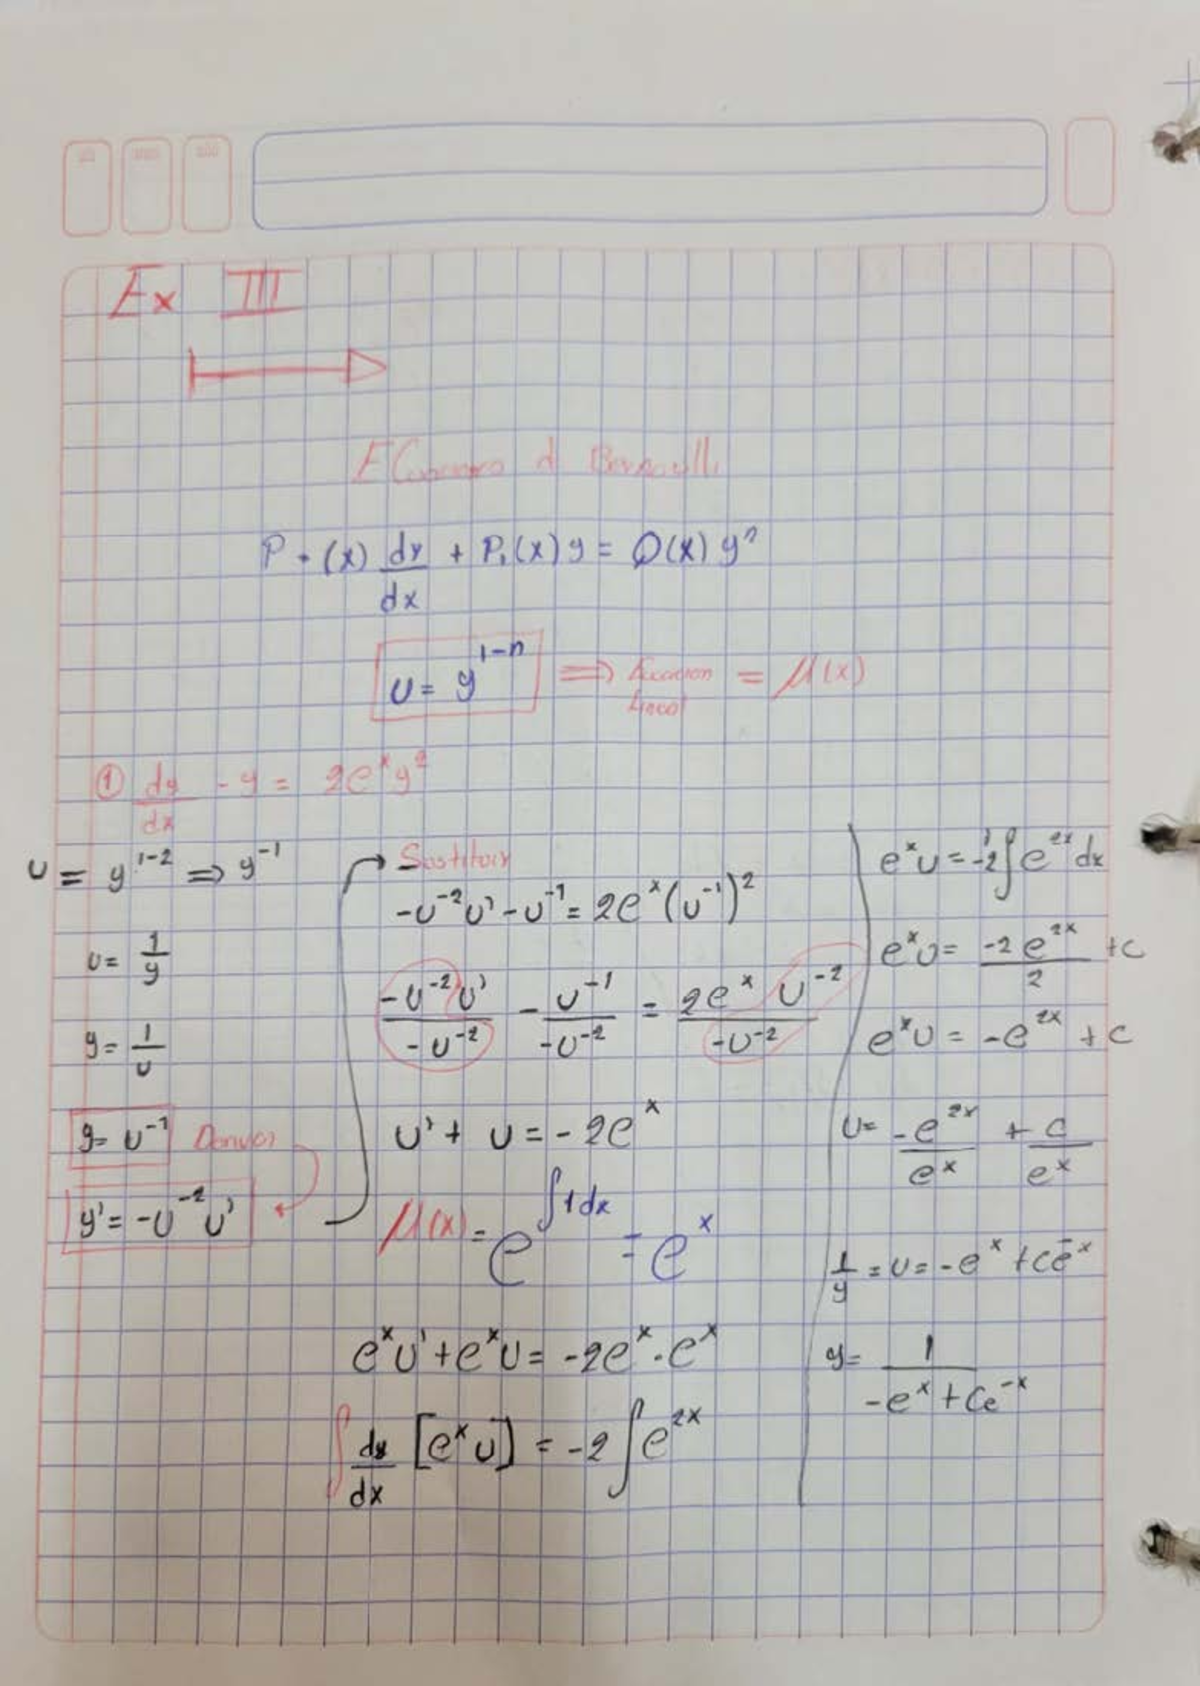 Ex III
Ecuaciones d Bernoulli
P₀(x) dy/dx + P₁(x)y = Q(x)yⁿ
u = y^(1-n) ⟹ Ecuacion Lineal = μ(x)
① dy/dx - y = 2e^x y²
u = y^(1-2) ⟹ y^(-1)
u = 1/y
y = 1/u
y = u^(-1) Derivar
y' = -u^(-2) u'
Sustituir
-u^(-2)u' - u^(-1) = 2e^x (u^(-1))²
(-u^(-2) u')/(-u^(-2)) - u^(-1)/(-u^(-2)) = (2e^x u^(-2))/(-u^(-2))
u' + u = -2e^x
μ(x) = e^(∫1dx) = e^x
e^x u' + e^x u = -2e^x · e^x
∫ dy/dx [e^x u] = -2 ∫ e^(2x)
e^x u = -2 ∫ e^(2x) dx
e^x u = (-2e^(2x))/2 + c
e^x u = -e^(2x) + c
u = -e^(2x)/e^x + c/e^x
1/y = u = -e^x + ce^(-x)
y = 1/(-e^x + Ce^(-x))